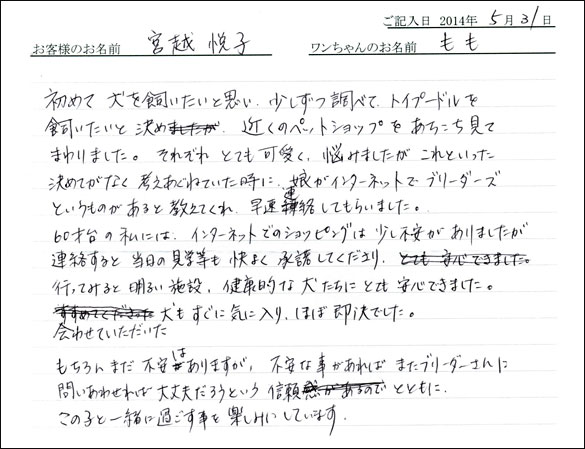 ご記入日 2014年 5月 31日
お客様のお名前 宮越 悦子 ワンちゃんのお名前 もも
初めて 犬を飼いたいと思い、少しずつ調べて、トイプードルを
飼いたいと 決め 、近くのペットショップを あちこち見て
まわりました。それぞれ とても 可愛く、悩みましたが これといった
決めてがなく 考えあぐねていた時に、娘がインターネットで ブリーダーズ
というものがあると 教えてくれ、早速 連絡してもらいました。
60才台の私には、インターネットでのショッピングは 少し不安が ありましたが
連絡すると 当日の見学等も 快よく 承諾してくださり、とても 安心できました。
行ってみると 明るい施設、健康的な 犬たちに とても 安心できました。
すすめてくださった 犬も すぐに 気に入り、ほぼ 即決でした。
会わせていただいた
もちろん まだ 不安はありますが、不安な事があれば またブリーダーさんに
問いあわせれば 大丈夫だろうという 信頼感があるので とともに、
この子と一緒に過ごす事を 楽しみにしています。